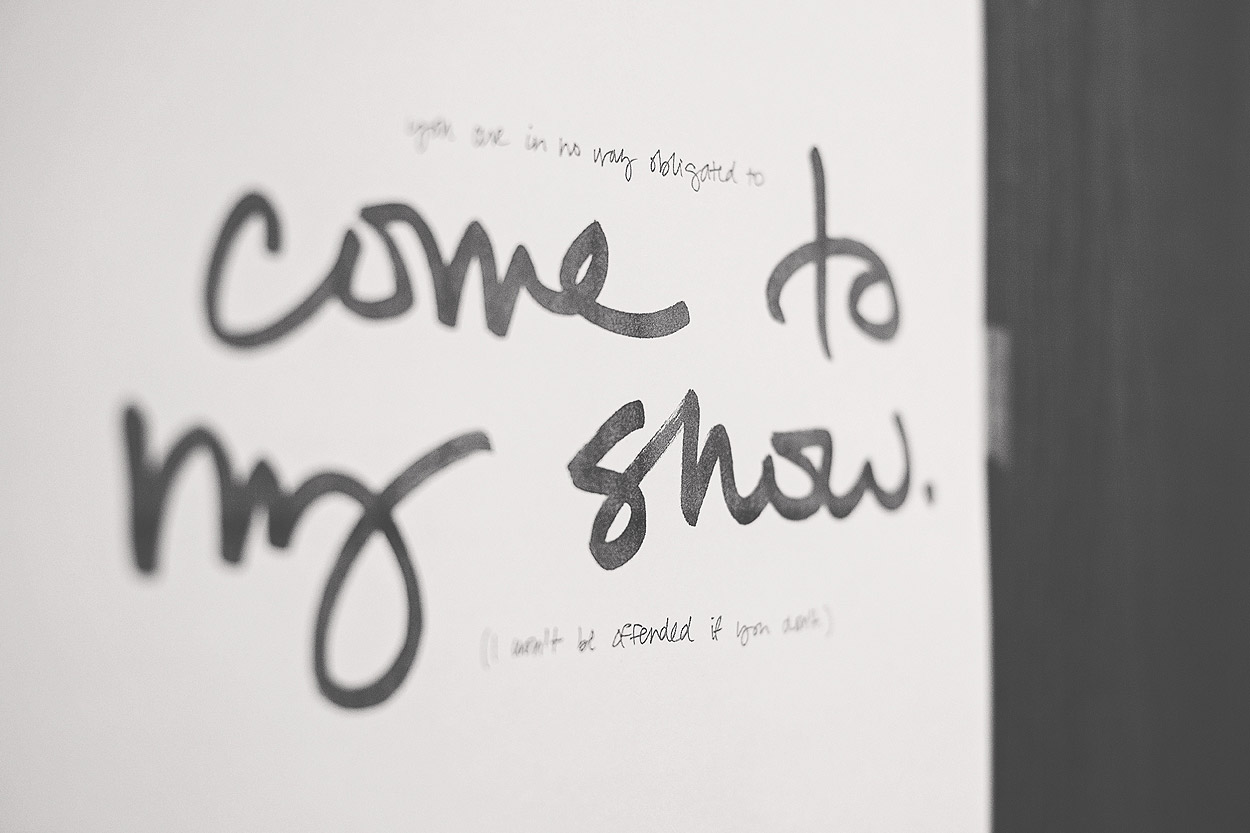 you are in no way obligated to
come to
my show.
(I won't be offended if you don't)